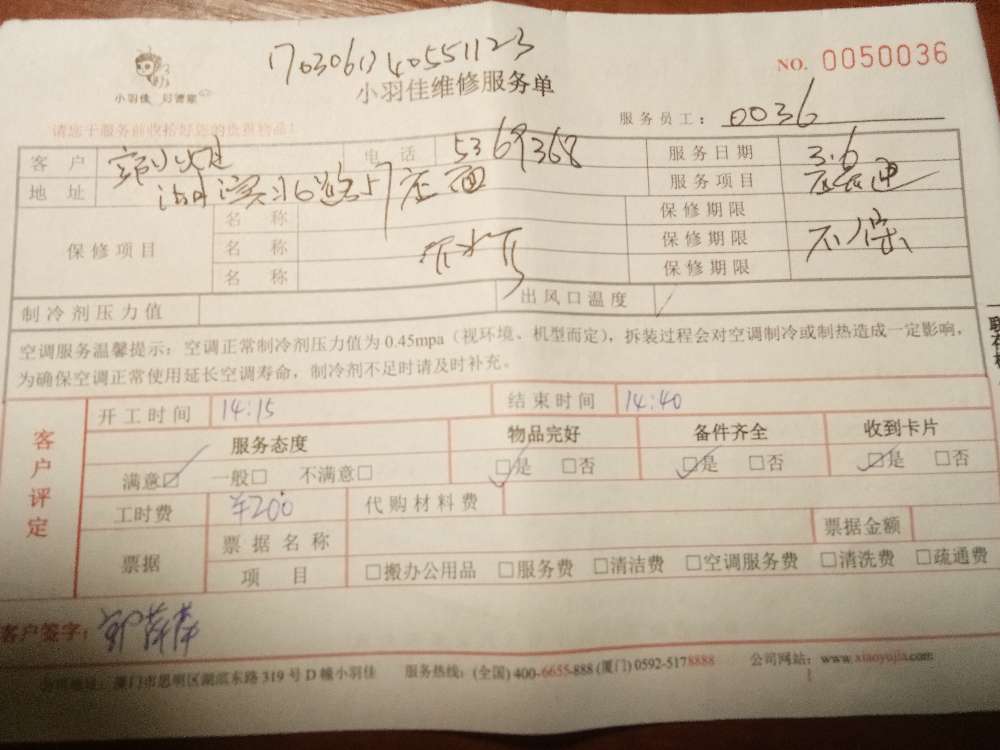 17030613405511​23
NO. 0050036
小羽佳
小羽佳维修服务单
服务员工： 0036
请您于服务前收拾好您的贵重物品！
客 户 电 话 5369368 服务日期 3.6
地 址 服务项目
名 称 保修期限
保修项目 名 称 保修期限 不保
名 称 保修期限
制冷剂压力值 出风口温度
空调服务温馨提示：空调正常制冷剂压力值为 0.45mpa（视环境、机型而定），拆装过程会对空调制冷或制热造成一定影响，
为确保空调正常使用延长空调寿命，制冷剂不足时请及时补充。
客户评定
开工时间 14:15 结束时间 14:40
服务态度 物品完好 备件齐全 收到卡片
满意□ 一般□ 不满意□ □是 □否 □是 □否 □是 □否
工时费 ¥200 代购材料费
票据 票据名称 票据金额
项 目 □搬办公用品 □服务费 □清洁费 □空调服务费 □清洗费 □疏通费
客户签字：
公司地址：厦门市思明区湖滨东路 319 号 D 幢小羽佳 服务热线：(全国) 400-6655-888 (厦门) 0592-5178888 公司网站：www.xiaoyujia.com